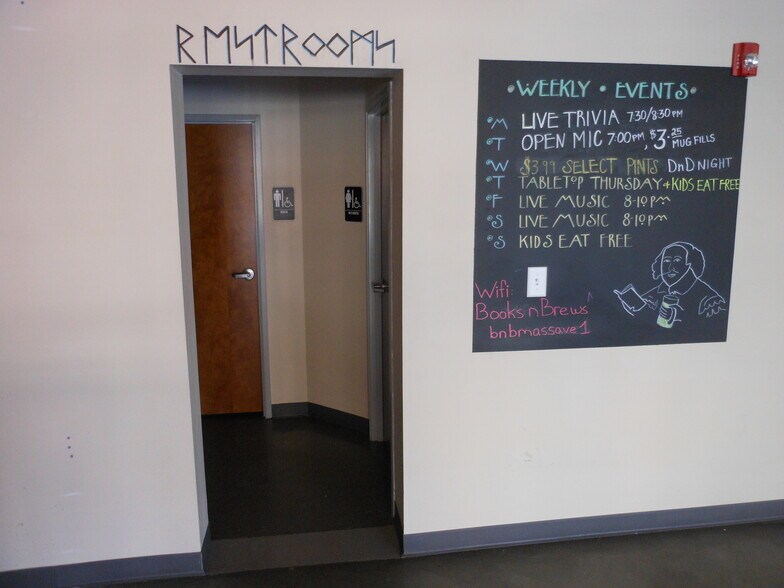 RESTROOMS
•WEEKLY • EVENTS•
•M LIVE TRIVIA 7:30/8:30 PM
•T OPEN MIC 7:00PM, $3.25 MUG FILLS
•W $3.99 SELECT PINTS DnD NIGHT
•T TABLETOP THURSDAY + KIDS EAT FREE
•F LIVE MUSIC 8-10pm
•S LIVE MUSIC 8-10pm
•S KIDS EAT FREE
Wifi:
Books n Brews
bnbmassave1